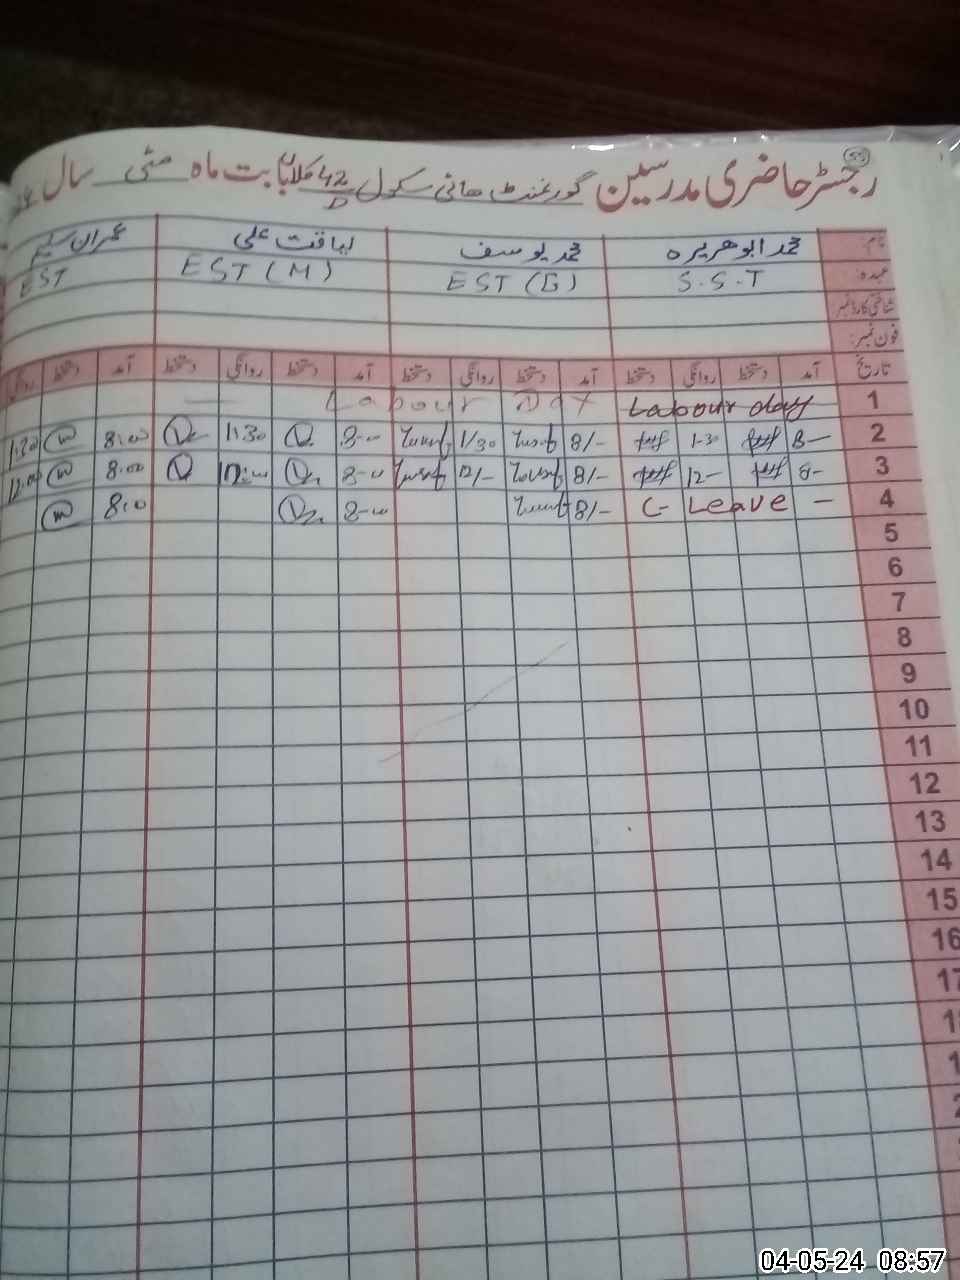 رجسٹر حاضری مدرسین گورنمنٹ ہائی سکول 42 بابت ماہ مئی سال
نام: محمد ابوھریرہ محمد یوسف لیاقت علی عمران سلیم
عہدہ S.S.T EST (G) EST (M) EST
شناختی کارڈ نمبر:
فون نمبر:
تاریخ آمد دستخط روانگی دستخط آمد دستخط روانگی دستخط آمد دستخط روانگی دستخط آمد دستخط روانگی
1 Labour day Labour Day
2 8- 1-30 8/- 1/30 8-00 1:30 8:00 1:30
3 8- 12- 8/- 12/- 8-00 12:00 8:00 12:00
4 C- Leave - 8/- 8-00 8:0
5
6
7
8
9
10
11
12
13
14
15
16
17
04-05-24 08:57